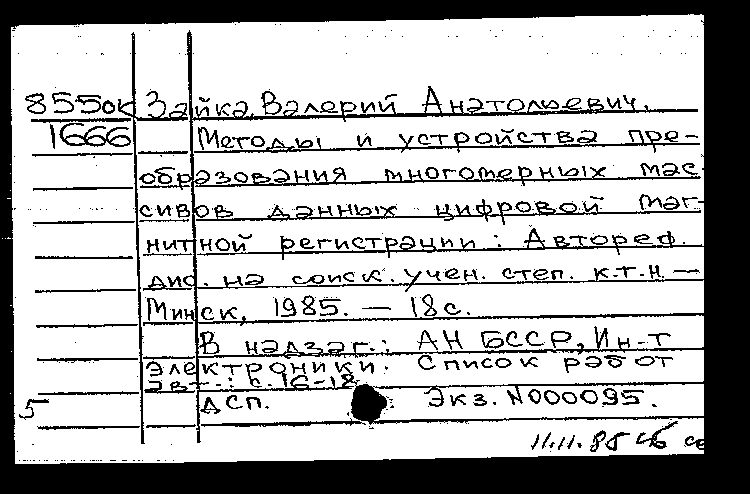 855ок Зайка, Валерий Анатольевич.
1666 Методы и устройства пре-
образования многомерных мас-
сивов данных цифровой маг-
нитной регистрации: Автореф.
дис. на соиск. учен. степ. к.т.н. —
Минск, 1985. — 18 с.
В надзаг.: АН БССР, Ин-т
электроники. Список работ
авт.: с. 16-18
5 ДСП. Экз. №000095.
11.11.85